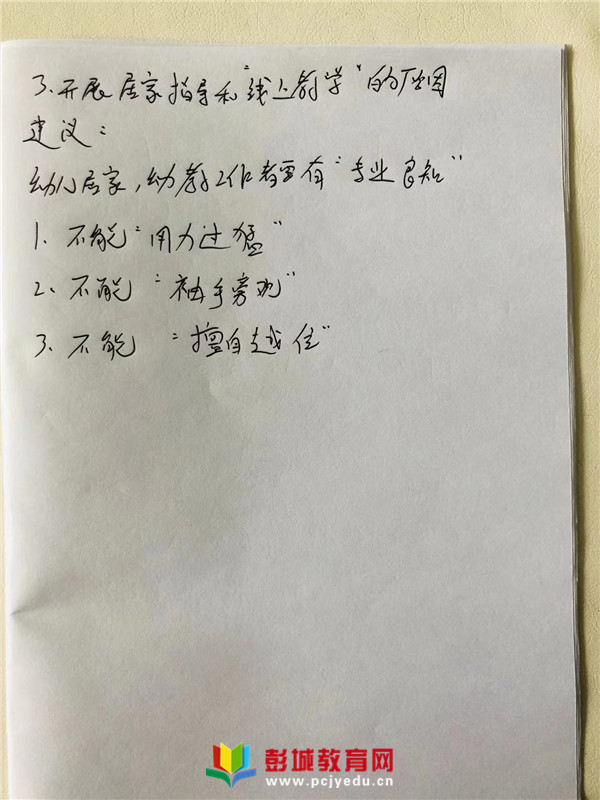 3、开展居家指导和“线上教学”的原因
建议：
幼儿居家，幼教工作者要有“专业良知”
1、不能“用力过猛”
2、不能“袖手旁观”
3、不能“擅自越位”
彭城教育网
www.pcjyedu.cn